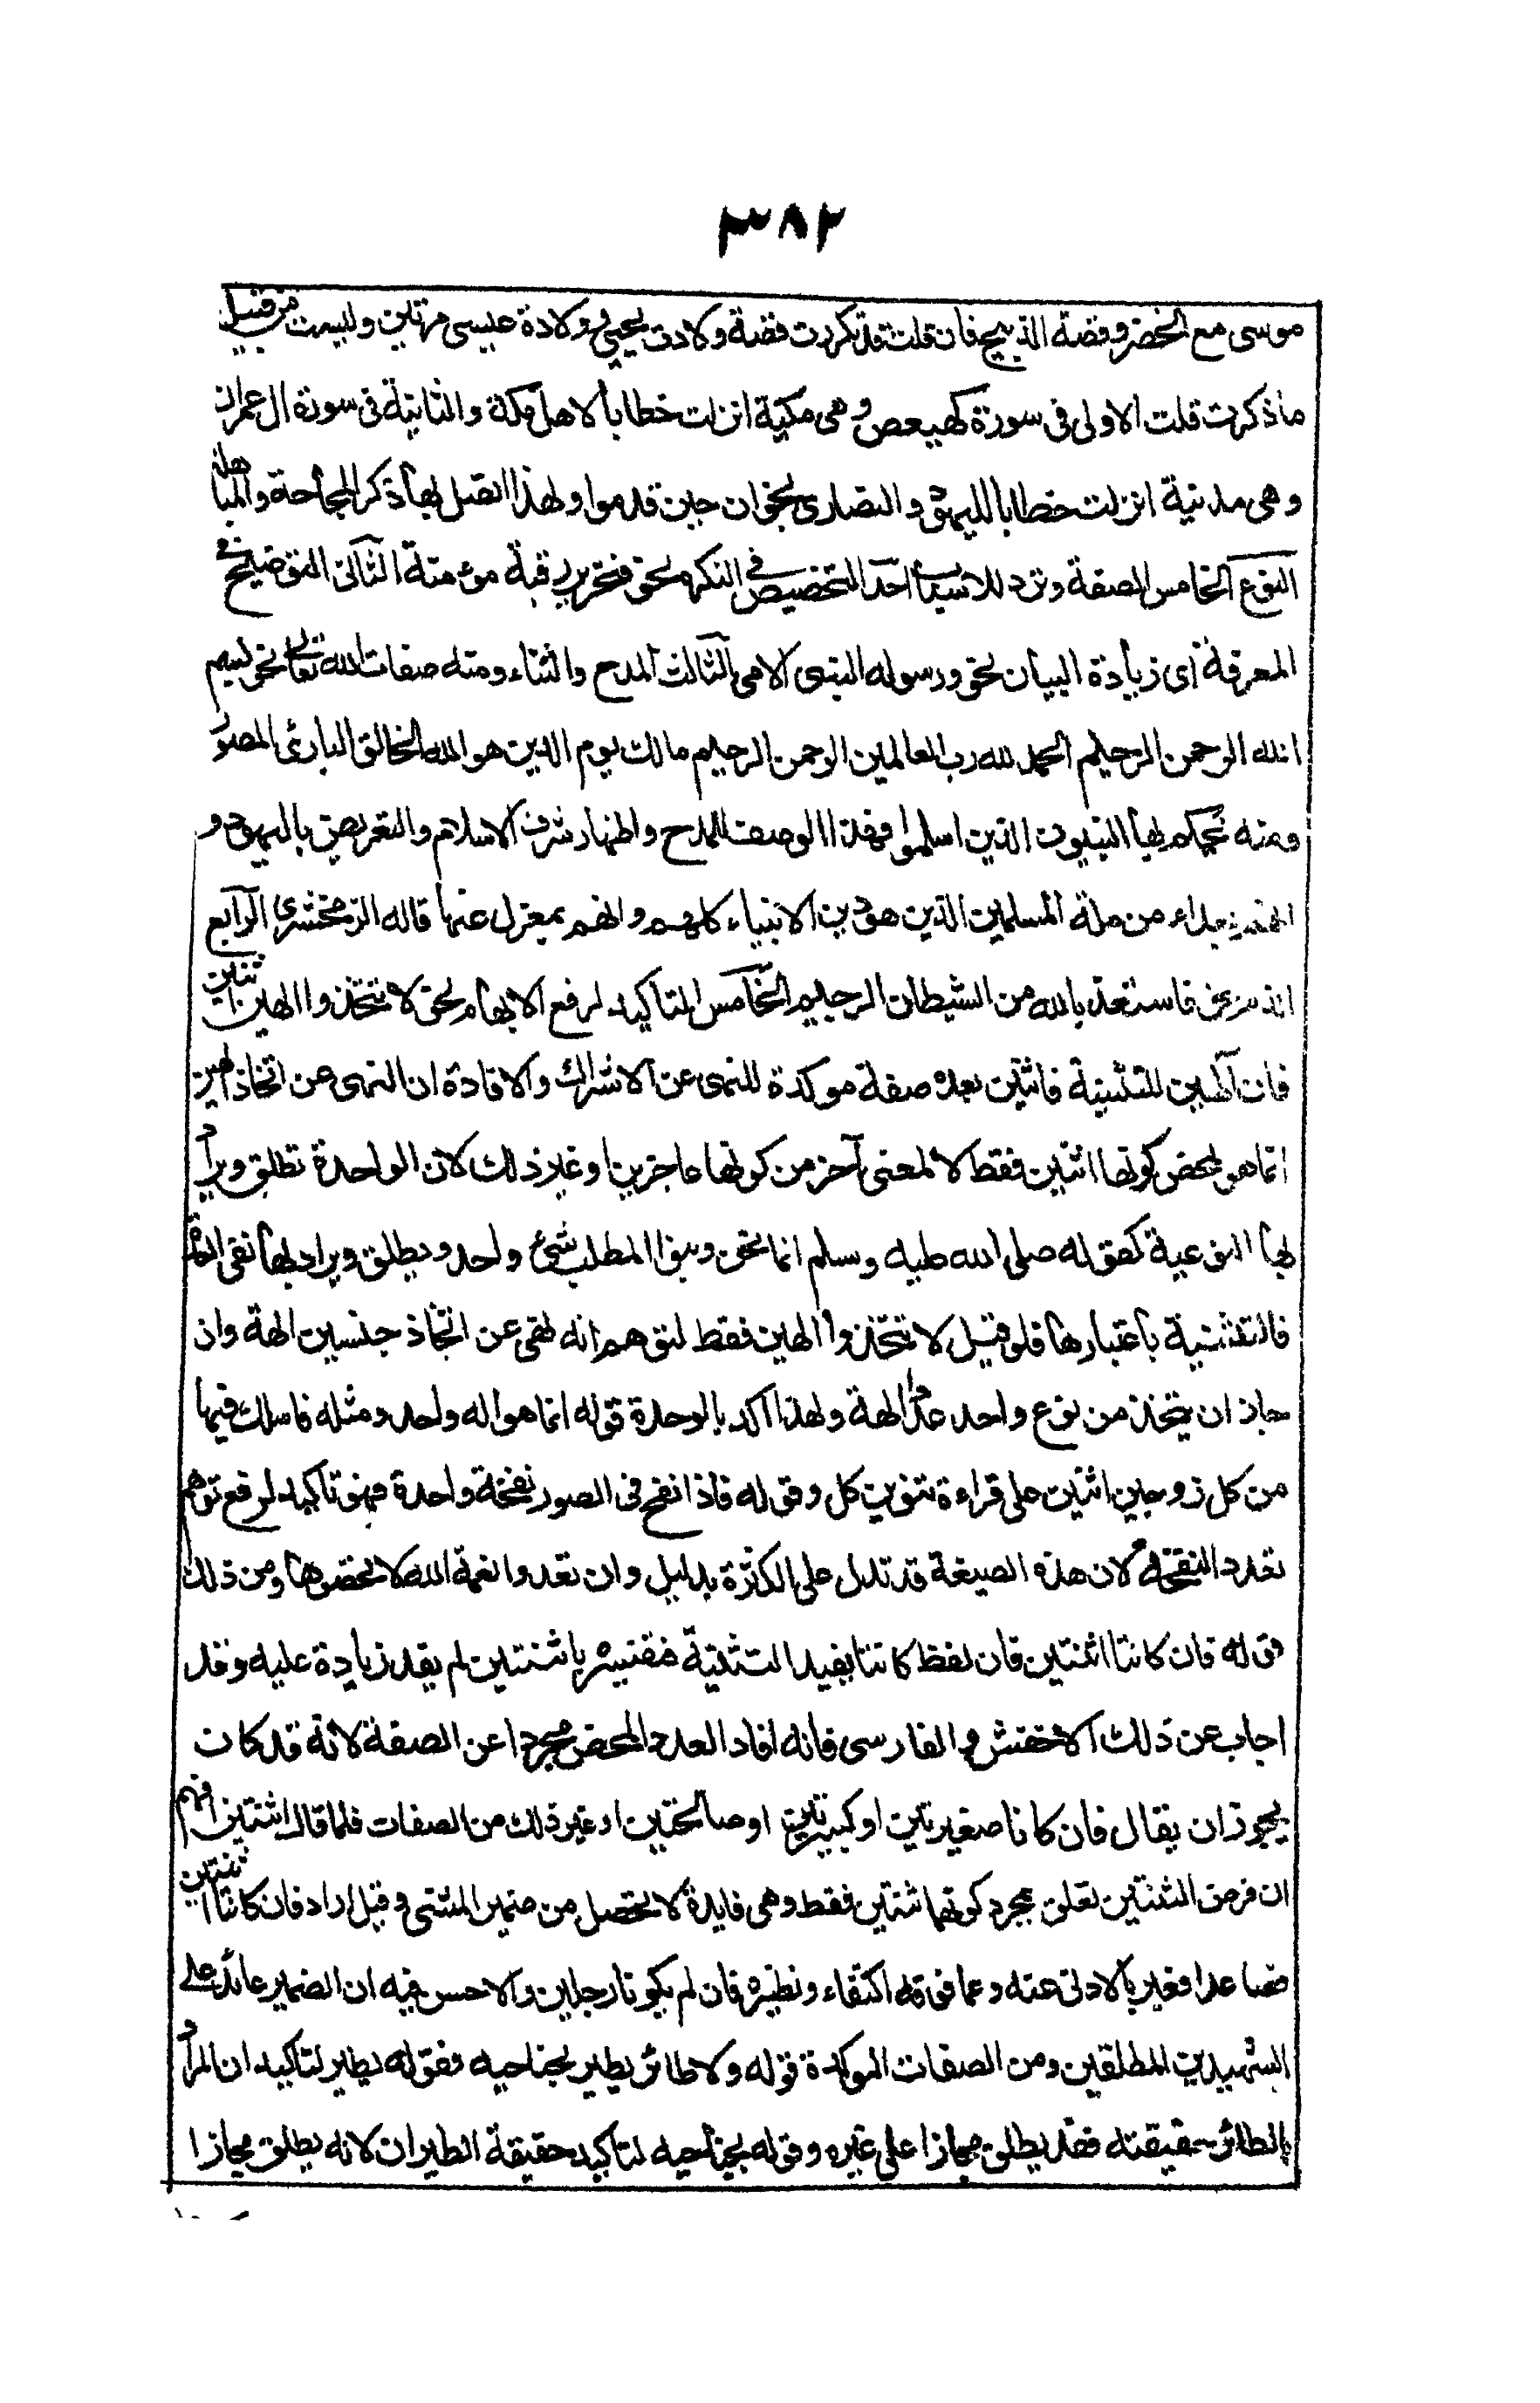 ٣٨٢
موسى مع الخضر وقصة الذبيح فان قلت قد تكررت قصة ولادت يحيى وولادة عيسى مرتين وليست من قبيل
ما ذكرت قلت الاولى فى سورة كهيعص وهى مكية انزلت خطابا لاهل مكة والثانية فى سورة ال عمران
وهى مدنية انزلت خطابا لليهود والنصارى نجران حين قدموا ولهذا اتصل بها ذكر المحاجة والمباهلة
النوع الخامس الصفة وترد لاسباب احد التخصيص فى النكرة نحو فتحرير رقبة مؤمنة الثانى التوضيح فى
المعرفة اى زيادة البيان نحو ورسوله النبى الامى الثالث المدح والثناء ومنه صفات الله تعالى نحو بسم
الله الرحمن الرحيم الحمد لله رب العالمين الرحمن الرحيم مالك يوم الدين هو الله الخالق البارئ المصور
ومنه يحكم بها النبيون الذين اسلموا فهذا الوصف للمدح واظهار شرف الاسلام والتعريض باليهود و
انهم بعداء من ملة المسلمين الذين هو دين الانبياء كلهم وانهم بمعزل عنها قاله الزمخشرى الرابع
الذم نحو فاستعذ بالله من الشيطان الرجيم الخامس التاكيد لرفع الابهام نحو لا تتخذوا الهين اثنين
فان الهين للتثنية فاثنين بعده صفة موكدة للنهى عن الاشراك والافادة ان النهى عن اتخاذ الهين
انما هو لمحض كونها اثنين فقط لا لمعنى آخر من كونها عاجزين او غير ذلك لان الواحدة تطلق ويراد
بها النوعية كقوله صلى الله عليه وسلم انما نحن وبنوا المطلب شئ واحد ويطلق ويراد بها نفى العدة
فالتثنية باعتبارها فلو قيل لا تتخذوا الهين فقط لتوهم انه نهى عن اتخاذ جنسين الهة وان
جاز ان يتخذ من نوع واحد عدد الهة ولهذا اكد بالوحدة قوله انما هو اله واحد ومثله فاسلك فيها
من كل زوجين اثنين على قراءة تنوين كل وقوله فاذا نفخ فى الصور نفخة واحدة فهو تاكيد لرفع توهم
تعدد النفخة لان هذه الصيغة قد تدل على الكثرة بدليل وان تعدوا نعمة الله لا تحصوها ومن ذلك
قوله فان كانتا اثنتين فان لفظ كانتا يفيد التثنية فتفسيره باثنتين لم يفد زيادة عليه وقد
اجاب عن ذلك الاخفش والفارسى فانه افاد العدد المحض مجردا عن الصفة لانه قد كان
يجوز ان يقال فان كانا صغيرتين او كبيرتين او صالحتين او غير ذلك من الصفات فلما قال اثنتين افهم
ان فرض الثنتين تعلق بمجرد كونهما ثنتين فقط وهى فايدة لا تحصل من ضمير المثنى وقيل اراد فان كانتا اثنتين
فصاعدا فعبر بالادنى عنه وعما فوقه اكتفاء ونظيره فان لم يكونا رجلين والاحسن فيه ان الضمير عائد على
الشهيدين المطلقين ومن الصفات الموكدة قوله ولا طائر يطير بجناحيه فقوله يطير لتاكيد ان المراد
بالطائر حقيقته فقد يطلق مجازا على غيره وقوله بجناحيه لتاكيد حقيقة الطيران لانه يطلق مجازا